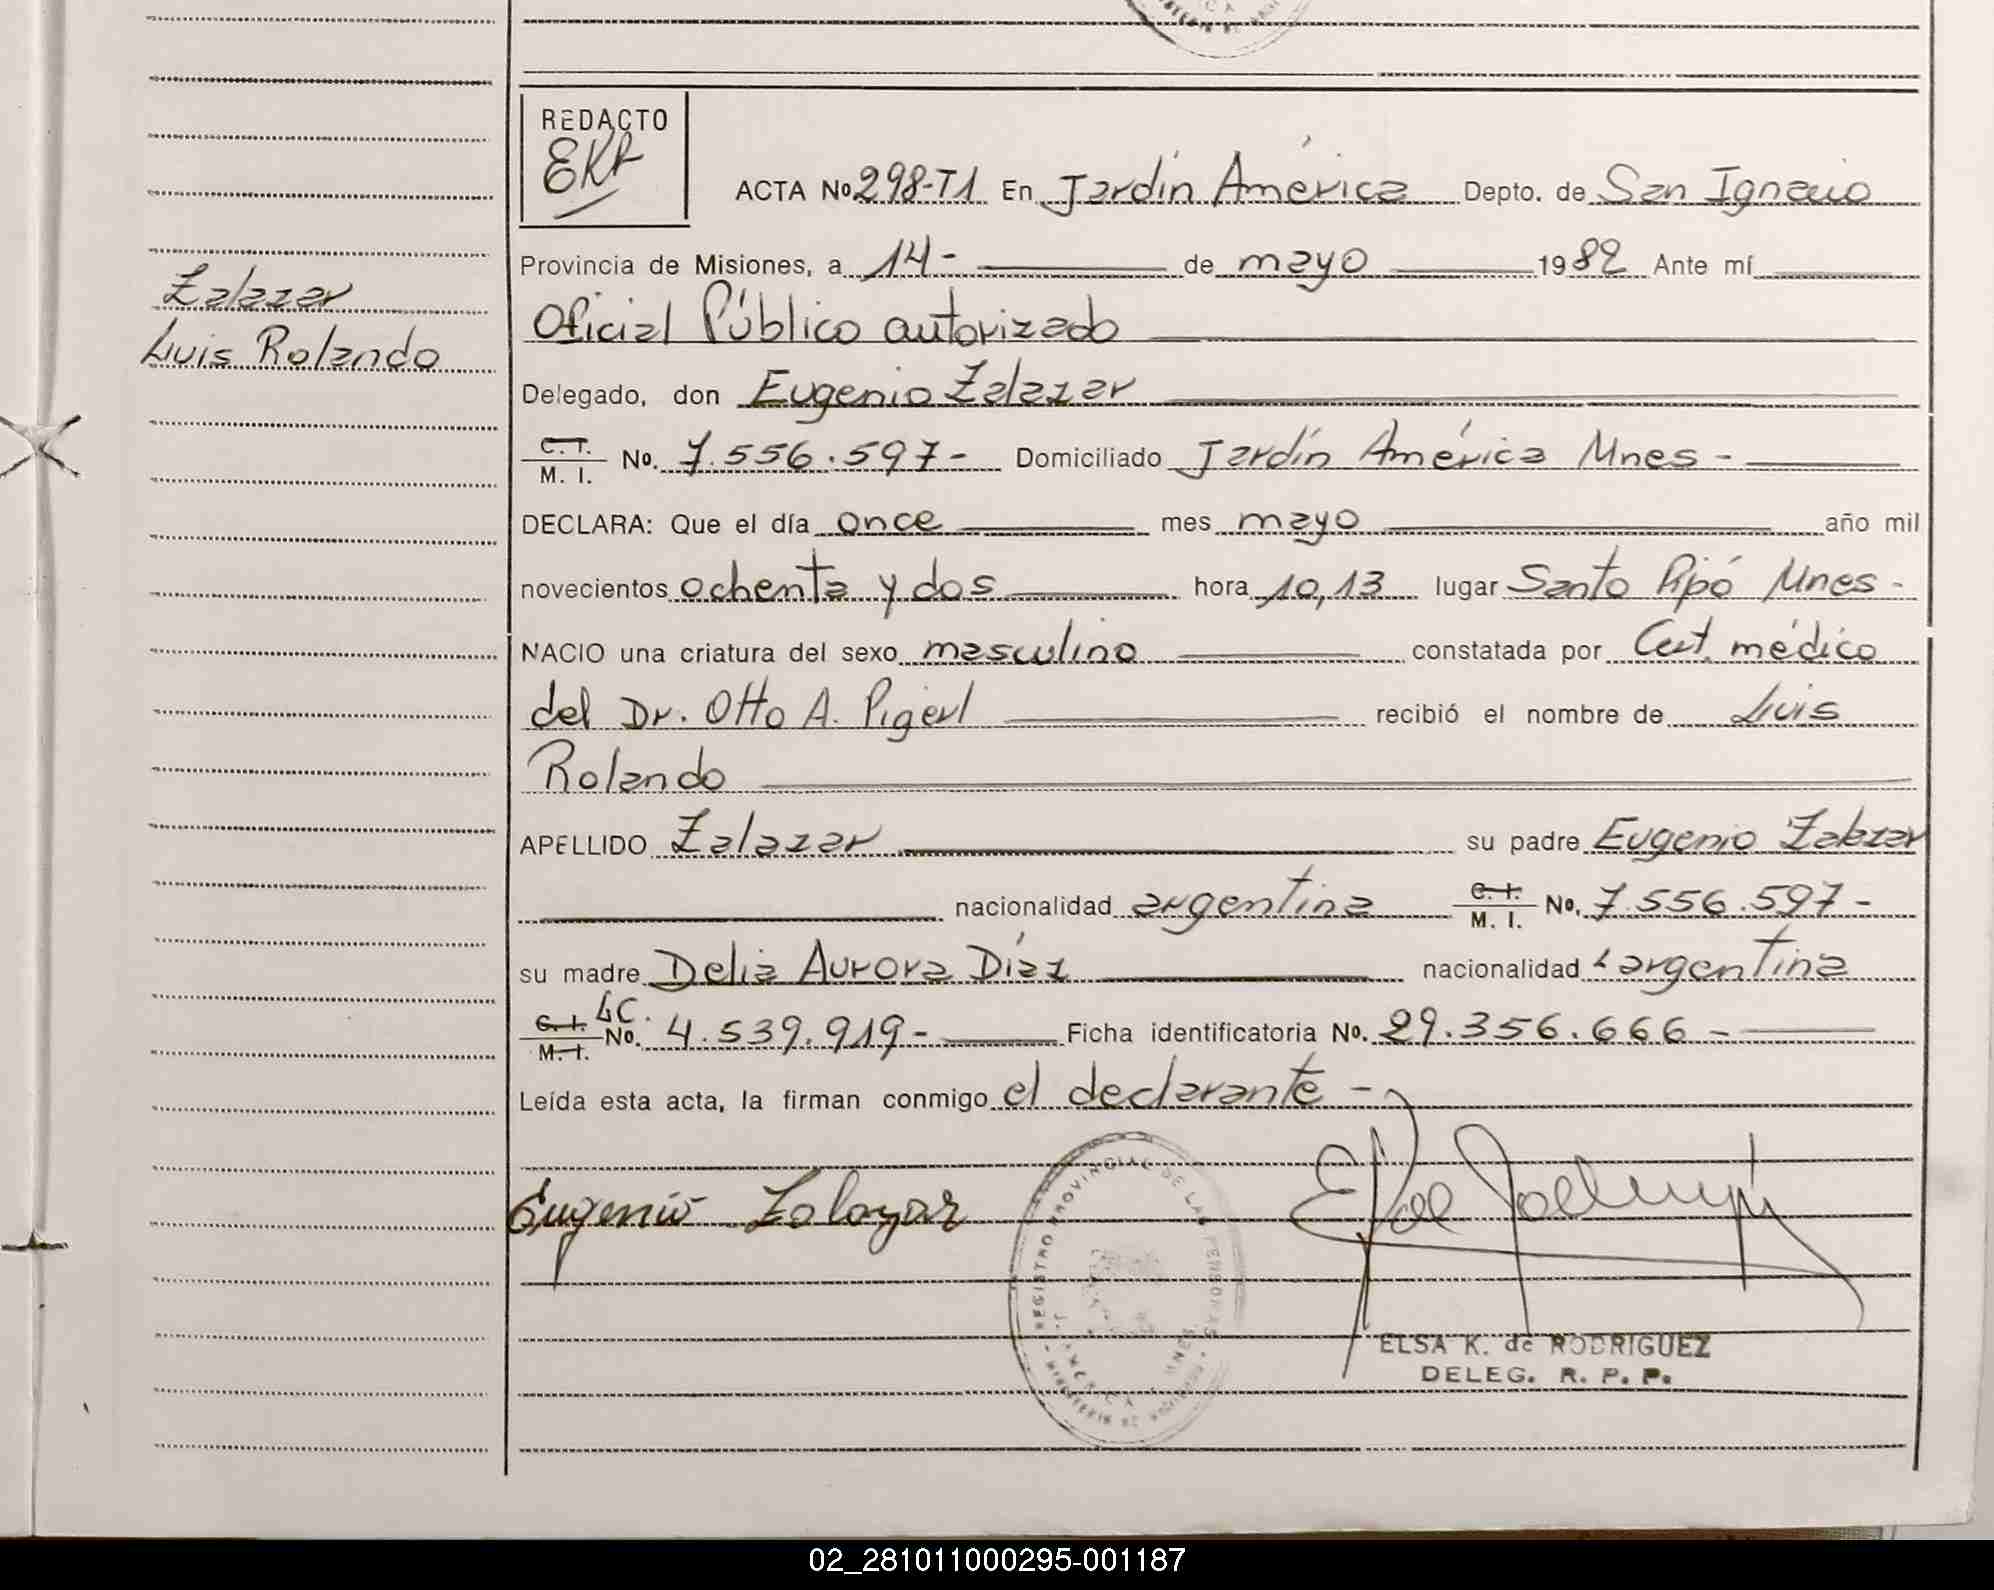 REDACTO
EKR
ACTA No 298-T1 En Jardín América Depto. de San Ignacio
Provincia de Misiones, a 14- de mayo 1982 Ante mí
Oficial Público autorizado
Zalazar
Luis Rolando
Delegado, don Eugenio Zalazar
C. I. M. I. No. 7.556.597- Domiciliado Jardín América Mnes-
DECLARA: Que el día once mes mayo año mil
novecientos ochenta y dos hora 10,13 lugar Santo Pipó Mnes-
NACIO una criatura del sexo masculino constatada por Cert. médico
del Dr. Otto A. Pigerl recibió el nombre de Luis
Rolando
APELLIDO Zalazar su padre Eugenio Zalazar
nacionalidad argentina C. I. M. I. No. 7.556.597-
su madre Delia Aurora Díaz nacionalidad argentina
C. I. M. I. LC. No. 4.539.919- Ficha identificatoria No. 29.356.666-
Leída esta acta, la firman conmigo el declarante-
Eugenio Zalazar
REGISTRO PROVINCIAL DE LAS PERSONAS
ELSA K. de RODRIGUEZ
DELEG. R. P. P.
02_281011000295-001187